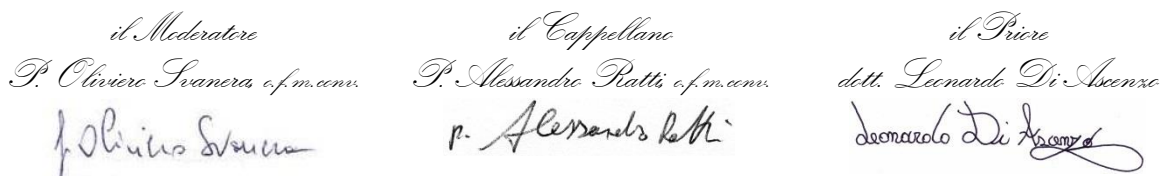 il Moderatore
P. Oliviero Svanera o.f.m.conv.
p. Oliviero Svanera
il Cappellano
P. Alessandro Ratti o.f.m.conv.
p. Alessandro Ratti
il Priore
dott. Leonardo Di Ascenzo
Leonardo Di Ascenzo